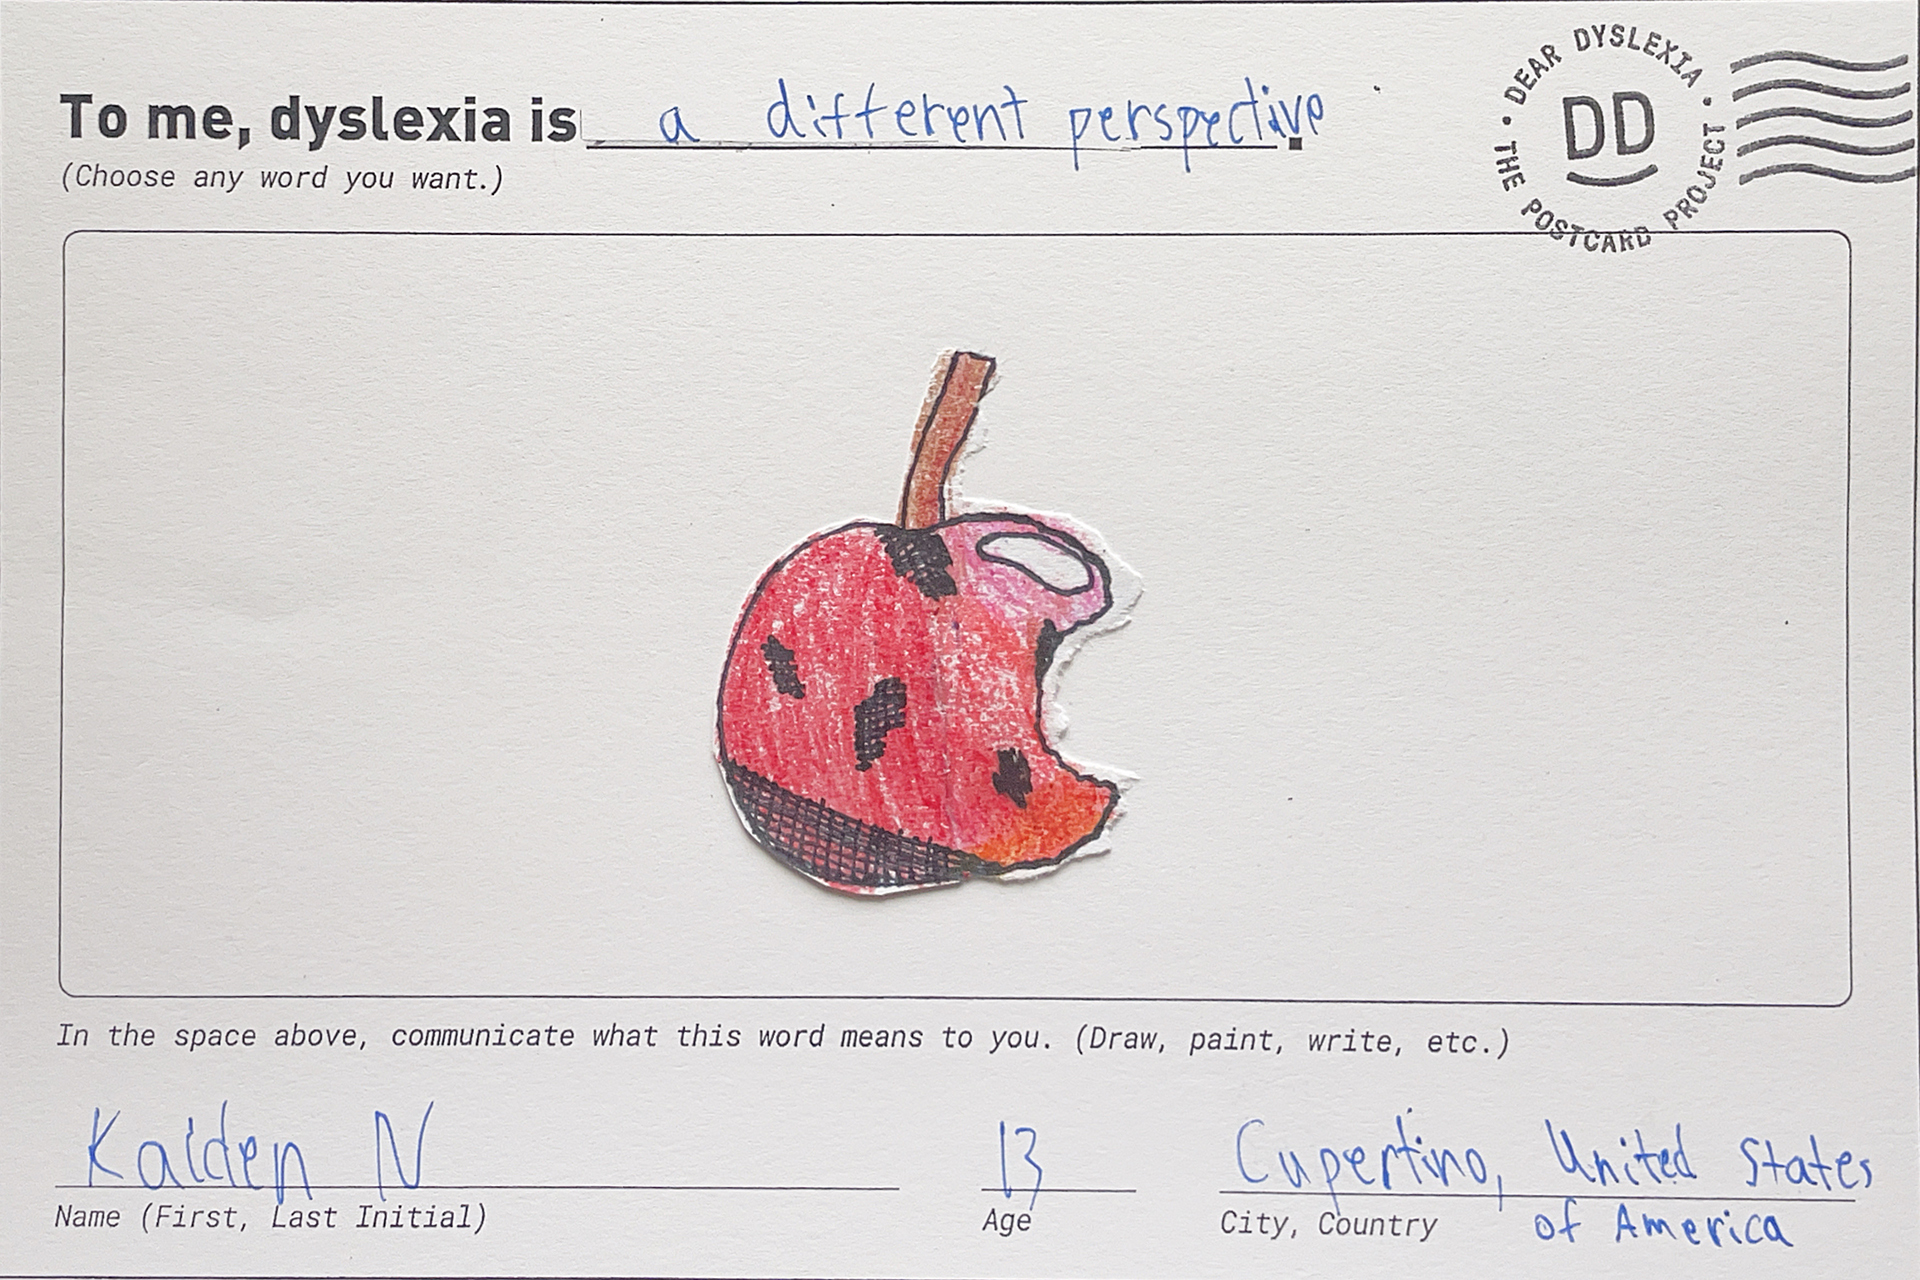 To me, dyslexia is a different perspective.
(Choose any word you want.)
• DEAR DYSLEXIA • THE POSTCARD PROJECT
DD
In the space above, communicate what this word means to you. (Draw, paint, write, etc.)
Kaiden N 13 Cupertino, United States
Name (First, Last Initial) Age City, Country of America